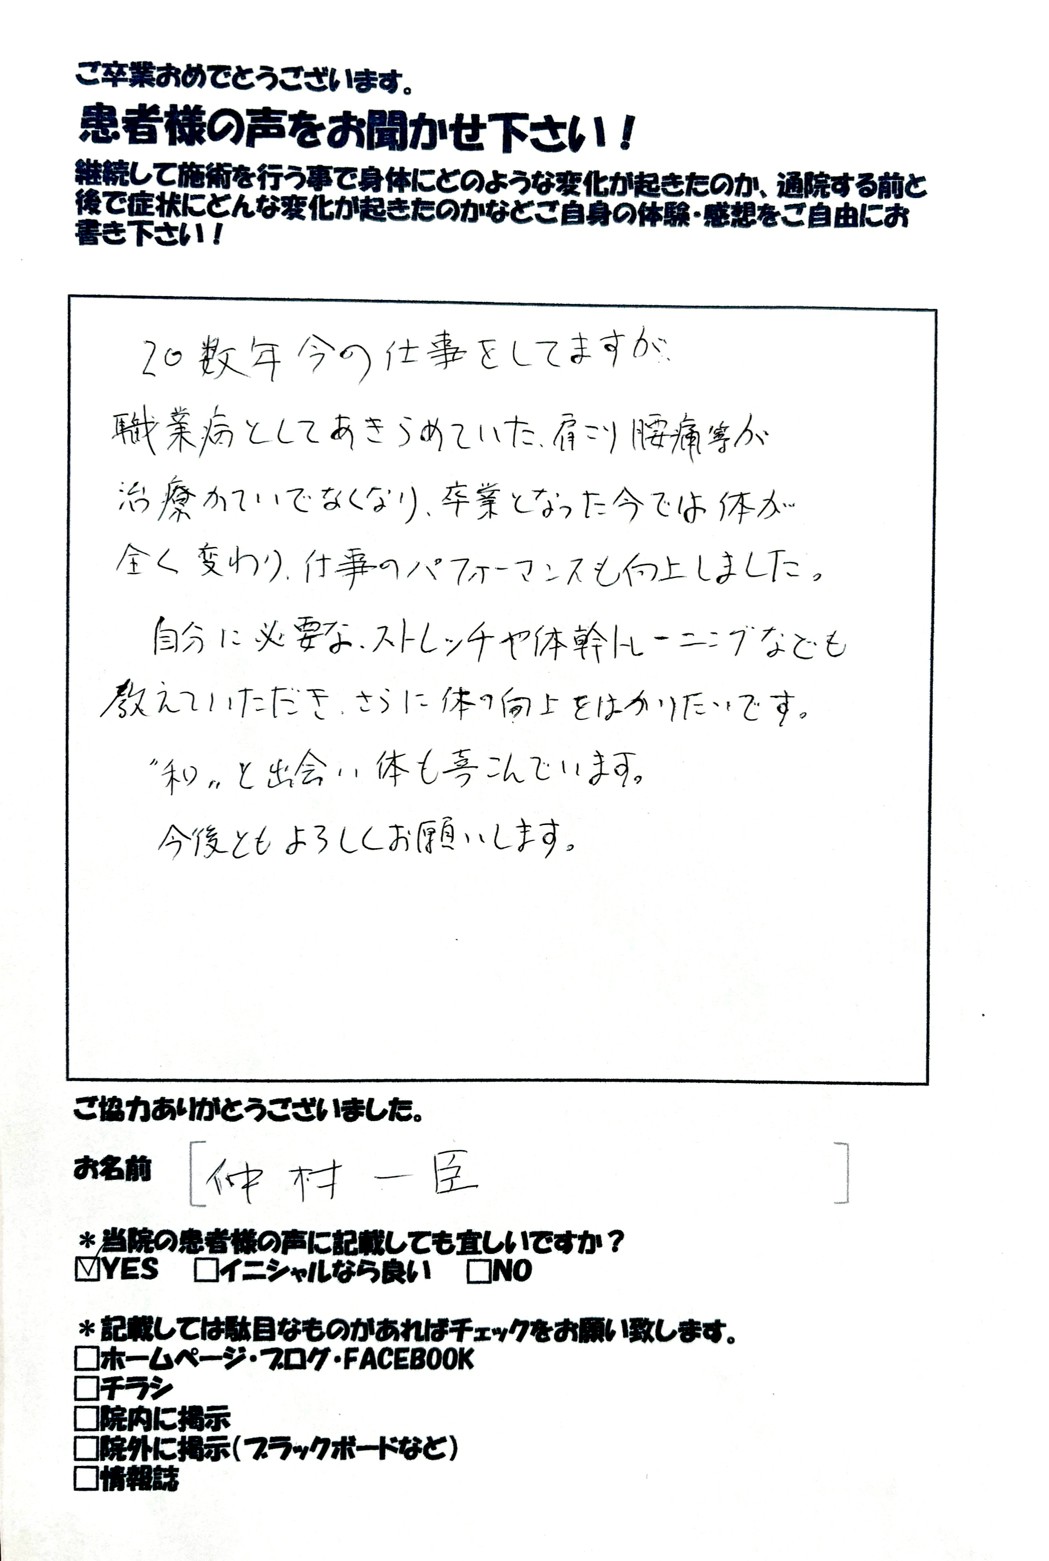 ご卒業おめでとうございます。
患者様の声をお聞かせ下さい！
継続して施術を行う事で身体にどのような変化が起きたのか、通院する前と
後で症状にどんな変化が起きたのかなどご自身の体験・感想をご自由にお
書き下さい！
20数年今の仕事をしてますが、
職業病としてあきらめていた、肩こり腰痛等が
治療かていでなくなり、卒業となった今では体が
全く変わり、仕事のパフォーマンスも向上しました。
自分に必要な、ストレッチや体幹トレーニングなども
教えていただき、さらに体の向上をはかりたいです。
"和"と出会い体も喜こんでいます。
今後ともよろしくお願いします。
ご協力ありがとうございました。
お名前 [仲村一臣]
＊当院の患者様の声に記載しても宜しいですか？
☑YES □イニシャルなら良い □NO
＊記載しては駄目なものがあればチェックをお願い致します。
□ホームページ・ブログ・FACEBOOK
□チラシ
□院内に掲示
□院外に掲示（ブラックボードなど）
□情報誌